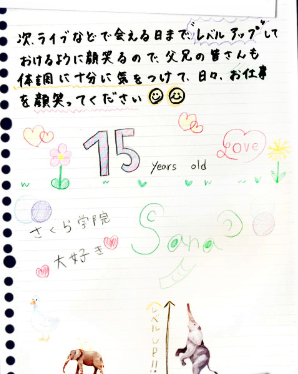 次、ライブなどで会える日まで、レベルアップして
おけるように顔笑るので、父兄の皆さんも
体調に十分に気をつけて、日々、お仕事
を顔笑ってください
15 years old
Love
さくら学院
大好き
Sana
レベルUP!!